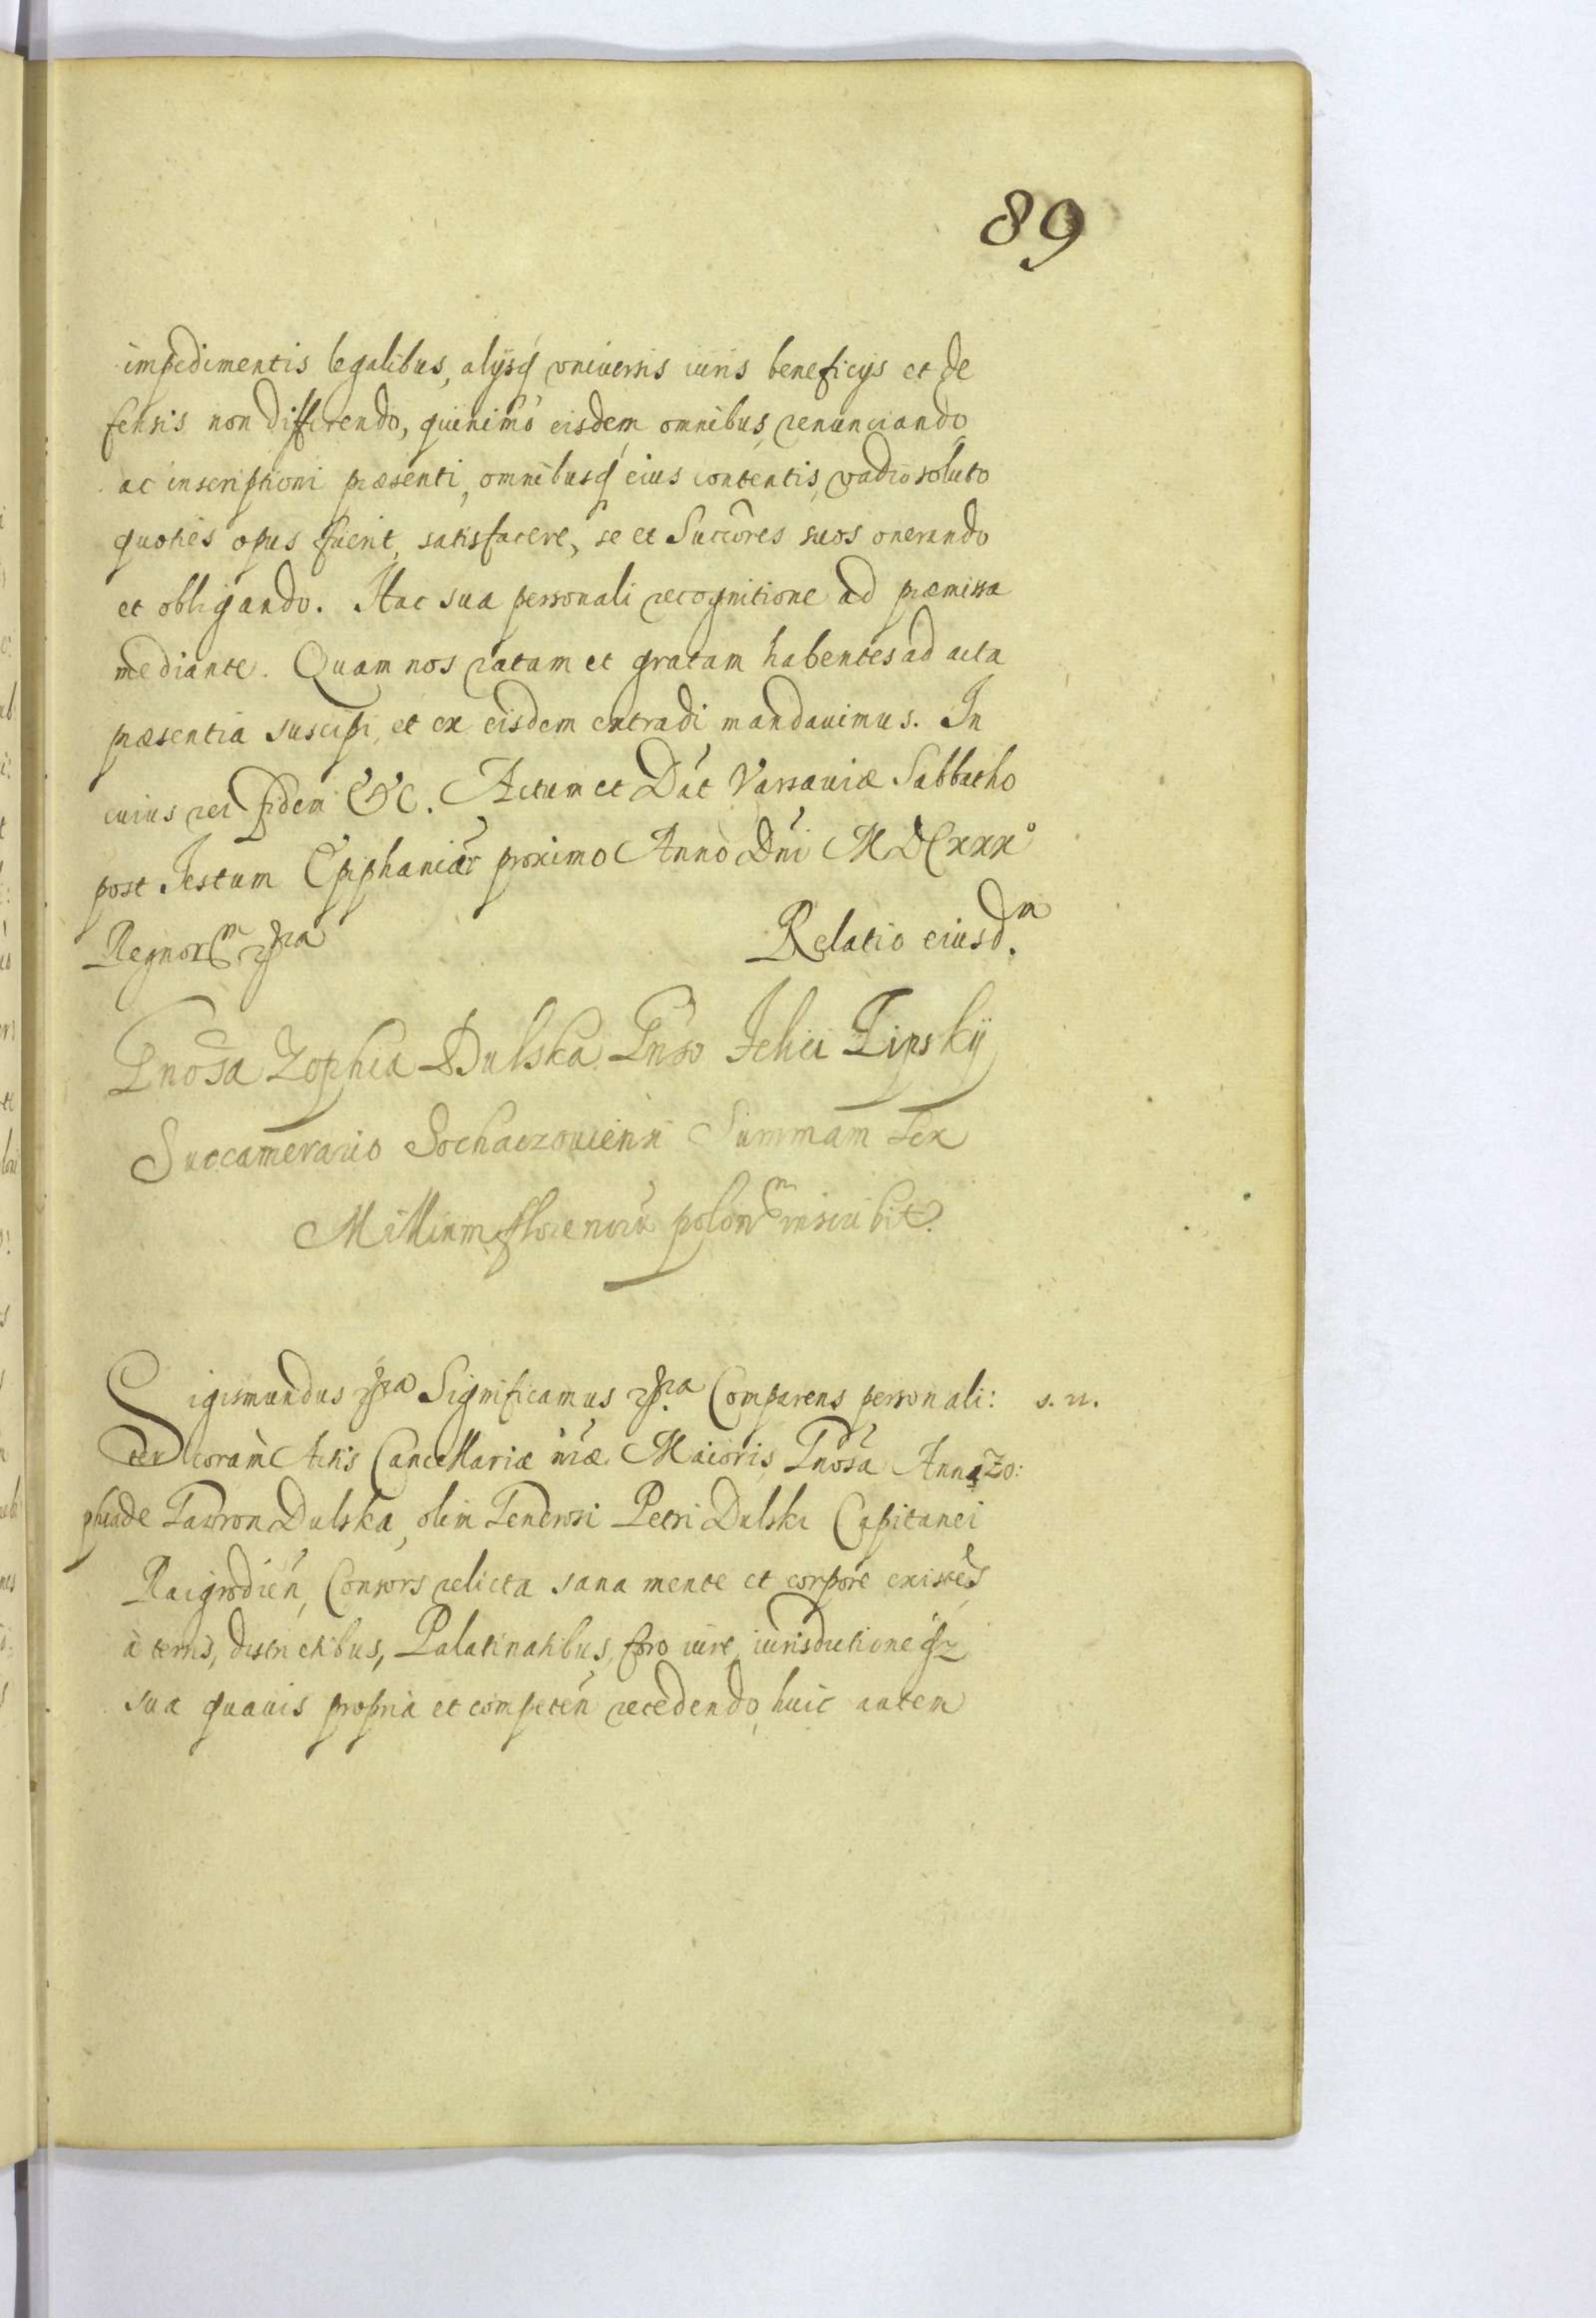 89
impedimentis legalibus, alijsq́ vniuersis iuris beneficijs et de
fensis non differendo, quinimo eisdem omnibus renunciando
ac inscriptioni præsenti, omnibusq́ eius contentis, vadio soluto
quoties opus fuerit, satisfacere, se et Succores suos onerando
et obligando. Hac sua personali recognitione ad præmissa
mediante. Quam nos ratam et gratam habentes ad acta
præsentia suscipi, et ex eisdem extradi mandauimus. In
cuius rei fidem &c. Actum et Dat Varsauiæ Sabbatho
post Festum Epiphaniar proximo Anno Dni MDCxxx°
Regnor
Relatio eiusdm.
Gnosa Zophia Dulska Gnso Felici Lipskij
Succamerario Sochaczouien Summam sex
Millium florenorũ polon inscribit.
Sigismundus Significamus Comparens personali: s. n.
ter coram Actis Cancellariæ nræ Maioris, Gnosa Anna Zo:
phia de Tawron Dulska, olim Generosi Petri Dulski Capitanei
Raigrodien, Consors relicta sana mente et corpore existes,
à terris, districtibus, Palatinatibus, foro iure, iurisdictione
sua quauis propria et competen recedendo, huic autem